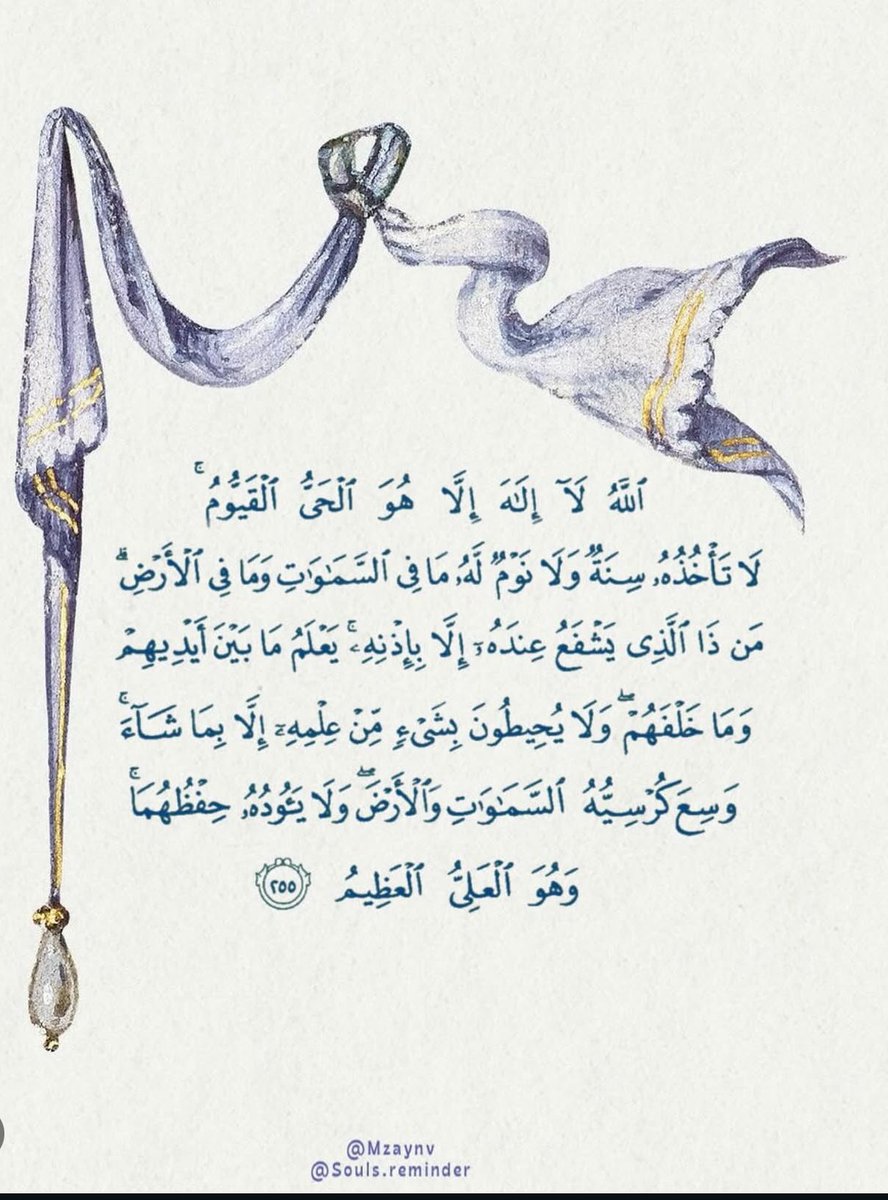 ٱللَّهُ لَآ إِلَـٰهَ إِلَّا هُوَ ٱلْحَىُّ ٱلْقَيُّومُ ۚ
لَا تَأْخُذُهُۥ سِنَةٌ وَلَا نَوْمٌ ۚ لَّهُۥ مَا فِى ٱلسَّمَـٰوَٰتِ وَمَا فِى ٱلْأَرْضِ ۗ
مَن ذَا ٱلَّذِى يَشْفَعُ عِندَهُۥٓ إِلَّا بِإِذْنِهِۦ ۚ يَعْلَمُ مَا بَيْنَ أَيْدِيهِمْ
وَمَا خَلْفَهُمْ ۖ وَلَا يُحِيطُونَ بِشَىْءٍ مِّنْ عِلْمِهِۦٓ إِلَّا بِمَا شَآءَ ۚ
وَسِعَ كُرْسِيُّهُ ٱلسَّمَـٰوَٰتِ وَٱلْأَرْضَ ۖ وَلَا يَـُٔودُهُۥ حِفْظُهُمَا ۚ
وَهُوَ ٱلْعَلِىُّ ٱلْعَظِيمُ ٢٥٥
@Mzaynv
@Souls.reminder